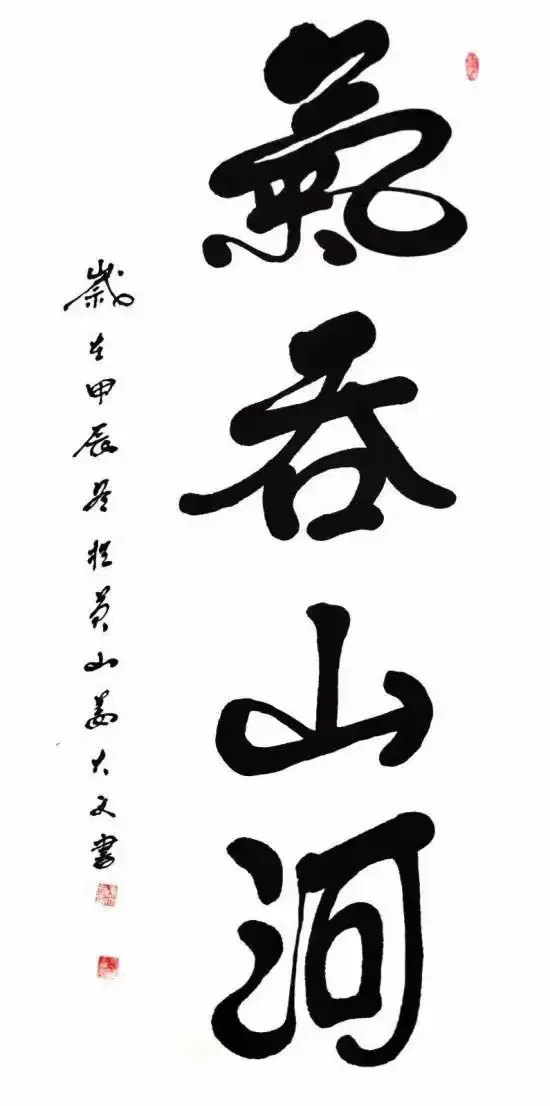 氣吞山河
歲在甲辰冬於黄山姜大文書